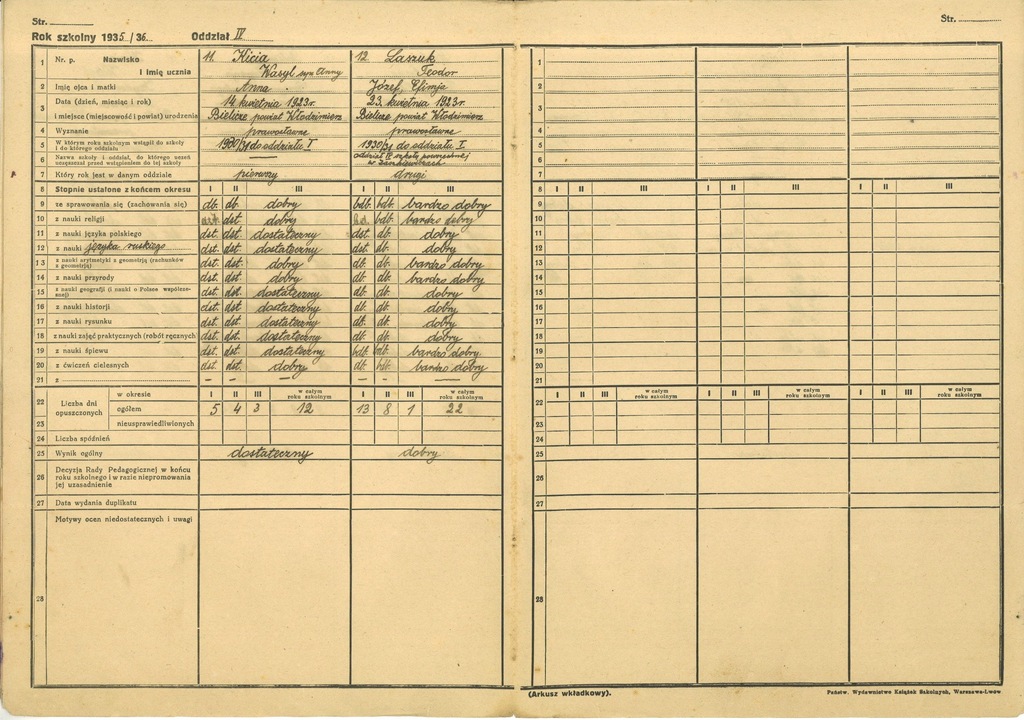 Str.
Rok szkolny 1935/36 Oddział IV
1 Nr. p. Nazwisko i imię ucznia 11. Kicia Wasyl syn Anny 12. Laszuk Teodor
2 Imię ojca i matki Anna Józef, Efimja
3 Data (dzień, miesiąc i rok) 14 kwietnia 1923 r. 23. kwietnia 1923 r.
i miejsce (miejscowość i powiat) urodzenia Bielicze powiat Włodzimierz Bielicze powiat Włodzimierz
4 Wyznanie prawosławne prawosławne
5 W którym roku szkolnym wstąpił do szkoły i do którego oddziału 1930/31 do oddziału I 1930/31 do oddziału I
6 Nazwa szkoły i oddział, do którego uczeń uczęszczał przed wstąpieniem do tej szkoły — oddział IV szkoły powszechnej w
7 Który rok jest w danym oddziale pierwszy drugi
8 Stopnie ustalone z końcem okresu I II III I II III
9 ze sprawowania się (zachowania się) db. db. dobry bdb. bdb. bardzo dobry
10 z nauki religji dst. dobry bdb. bardzo dobry
11 z nauki języka polskiego dst. dst. dostateczny dst. db. dobry
12 z nauki języka ruskiego dst. dst. dostateczny dst. db. dobry
13 z nauki arytmetyki z geometrją (rachunków z geometrją) dst. dst. dobry db. db. bardzo dobry
14 z nauki przyrody dst. dst. dobry db. db. bardzo dobry
15 z nauki geografji (i nauki o Polsce współczesnej) dst. dst. dostateczny db. db. dobry
16 z nauki historji dst. dst. dostateczny db. db. dobry
17 z nauki rysunku dst. dst. dostateczny db. db. dobry
18 z nauki zajęć praktycznych (robót ręcznych) dst. dst. dostateczny db. db. dobry
19 z nauki śpiewu dst. dst. dostateczny bdb. bdb. bardzo dobry
20 z ćwiczeń cielesnych dst. dst. dobry db. bdb. bardzo dobry
21 z — — — — — —
22 Liczba dni opuszczonych w okresie I II III w całym roku szkolnym I II III w całym roku szkolnym
ogółem 5 4 3 12 13 8 1 22
23 nieusprawiedliwionych
24 Liczba spóźnień
25 Wynik ogólny dostateczny dobry
26 Decyzja Rady Pedagogicznej w końcu roku szkolnego i w razie niepromowania jej uzasadnienie
27 Data wydania duplikatu
28 Motywy ocen niedostatecznych i uwagi
Str.
1
2
3
4
5
6
7
8 I II III I II III I II III
9
10
11
12
13
14
15
16
17
18
19
20
21
22 I II III w całym roku szkolnym I II III w całym roku szkolnym I II III w całym roku szkolnym
23
24
25
26
27
28
(Arkusz wkładkowy).
Państw. Wydawnictwo Książek Szkolnych, Warszawa-Lwów